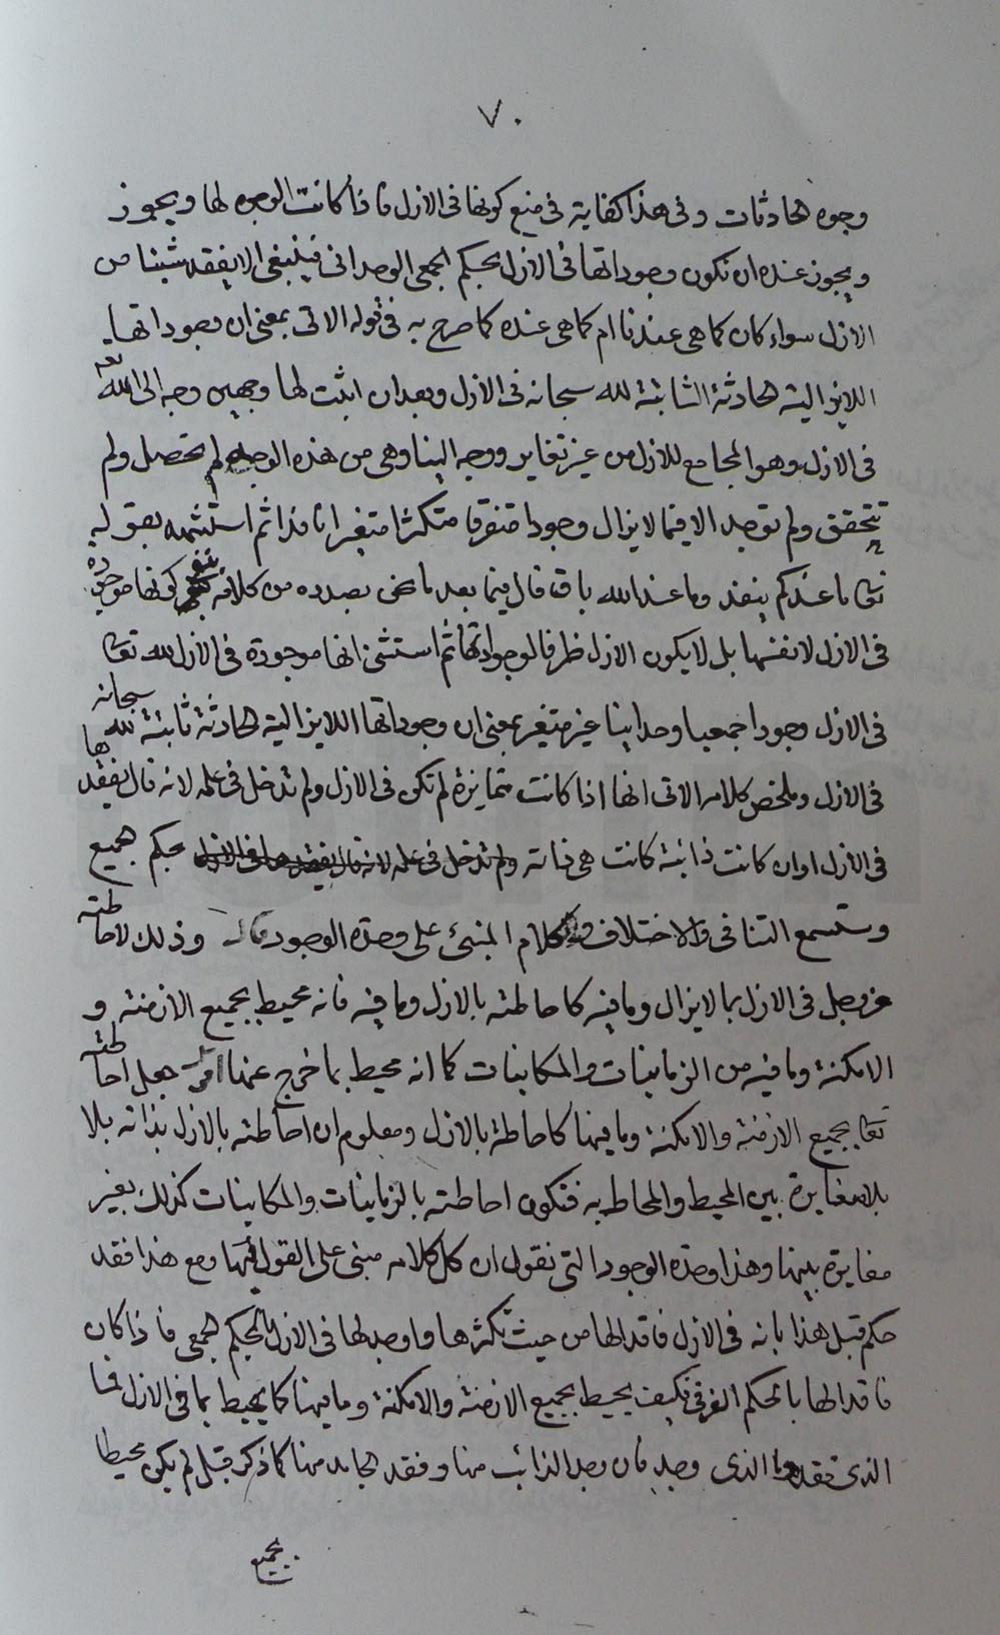 ٧٠
وجوه الحادثات وفى هذا كفاية فى منع كونها فى الازل فاذا كانت الوجوه لها ويجوز
ويجوز عنده ان تكون وجوداتها فى الازل بحكم الجمعى الوحدانى فينبغى الا يفقد شيئا من
الازل سواء كان كما هى عندنا ام كما هى عنده كما صرح به فى قوله الاتى بمعنى ان وجوداتها
اللايزالية الحادثة الثابتة لله سبحانه فى الازل وبعد ان اثبت لها وجهين وجه الى الله تعالى
فى الازل وهو المجامع للازل من غير تغاير ووجه الينا وهى من هذه الوجه لم تحصل ولم
تتحقق ولم توجد الا فيما لا يزال وجودا متفرقا متكثرا متغيرا نافدا ثم استشهد بقوله
تعا ما عندكم ينفد وما عند الله باق قال فيما بعد ما نحن بصدده من كلامه بنفى كونها موجودة
فى الازل لانفسها بل لا يكون الازل ظرفا لوجوداتها ثم استثنى انها موجودة فى الازل لله تعا
فى الازل وجودا جمعيا وحدانيا غير متغير بمعنى ان وجوداتها اللايزالية الحادثة ثابتة لله سبحانه
فى الازل وملخص كلامه الاتى انها اذا كانت متمايزة لم تكن فى الازل ولم تدخل فى علمه لانه قال يفقدها
فى الازل وان كانت ذائبة كانت هى ذاته ولم تدخل فى علمه لانه قال يفقدها فى الازل بحكم الجميع
وستسمع التنافى والاختلاف والكلام المنبئ على وحدة الوجود قال وذلك لاحاطته
عز وجل فى الازل بما لا يزال وما فيه كاحاطته بالازل وما فيه فانه محيط بجميع الازمنة و
الامكنة وما فيه من الزمانيات والمكانيات كما انه محيط بما خرج عنها اقول جعل احاطته
تعا بجميع الازمنة والامكنة وما فيها كاحاطة بالازل ومعلوم ان احاطته بالازل بذاته بلا
بلا مغايرة بين المحيط والمحاط به فتكون احاطته بالزمانيات والمكانيات كذلك بغير
مغايرة بينها وهذا وحدة الوجود التى نقول ان كل كلامه مبنى على القول بها ومع هذا فقد
حكم قبل هذا بانه فى الازل فاقد لها من حيث تكثرها واوجد لها فى الازل بالحكم الجمعى فاذا كان
فاقد لها بالحكم الفرقى فكيف يحيط بجميع الازمنة والامكنة وما فيها كما يحيط بما فى الازل فما
الذى فقد وما الذى وجد فان وجد الذائب منها وفقد الجامد منها كما ذكر قبل لم يكن محيطا
بجميع